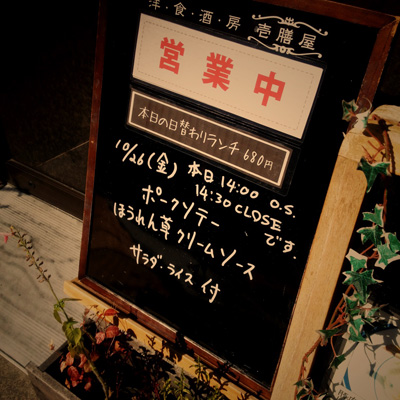 洋・食・酒・房 壱膳屋
営業中
本日の日替わりランチ 680円
10/26(金) 本日14:00 O.S.
14:30 CLOSE
です。
ポークソテー
ほうれん草クリームソース
サラダ・ライス 付